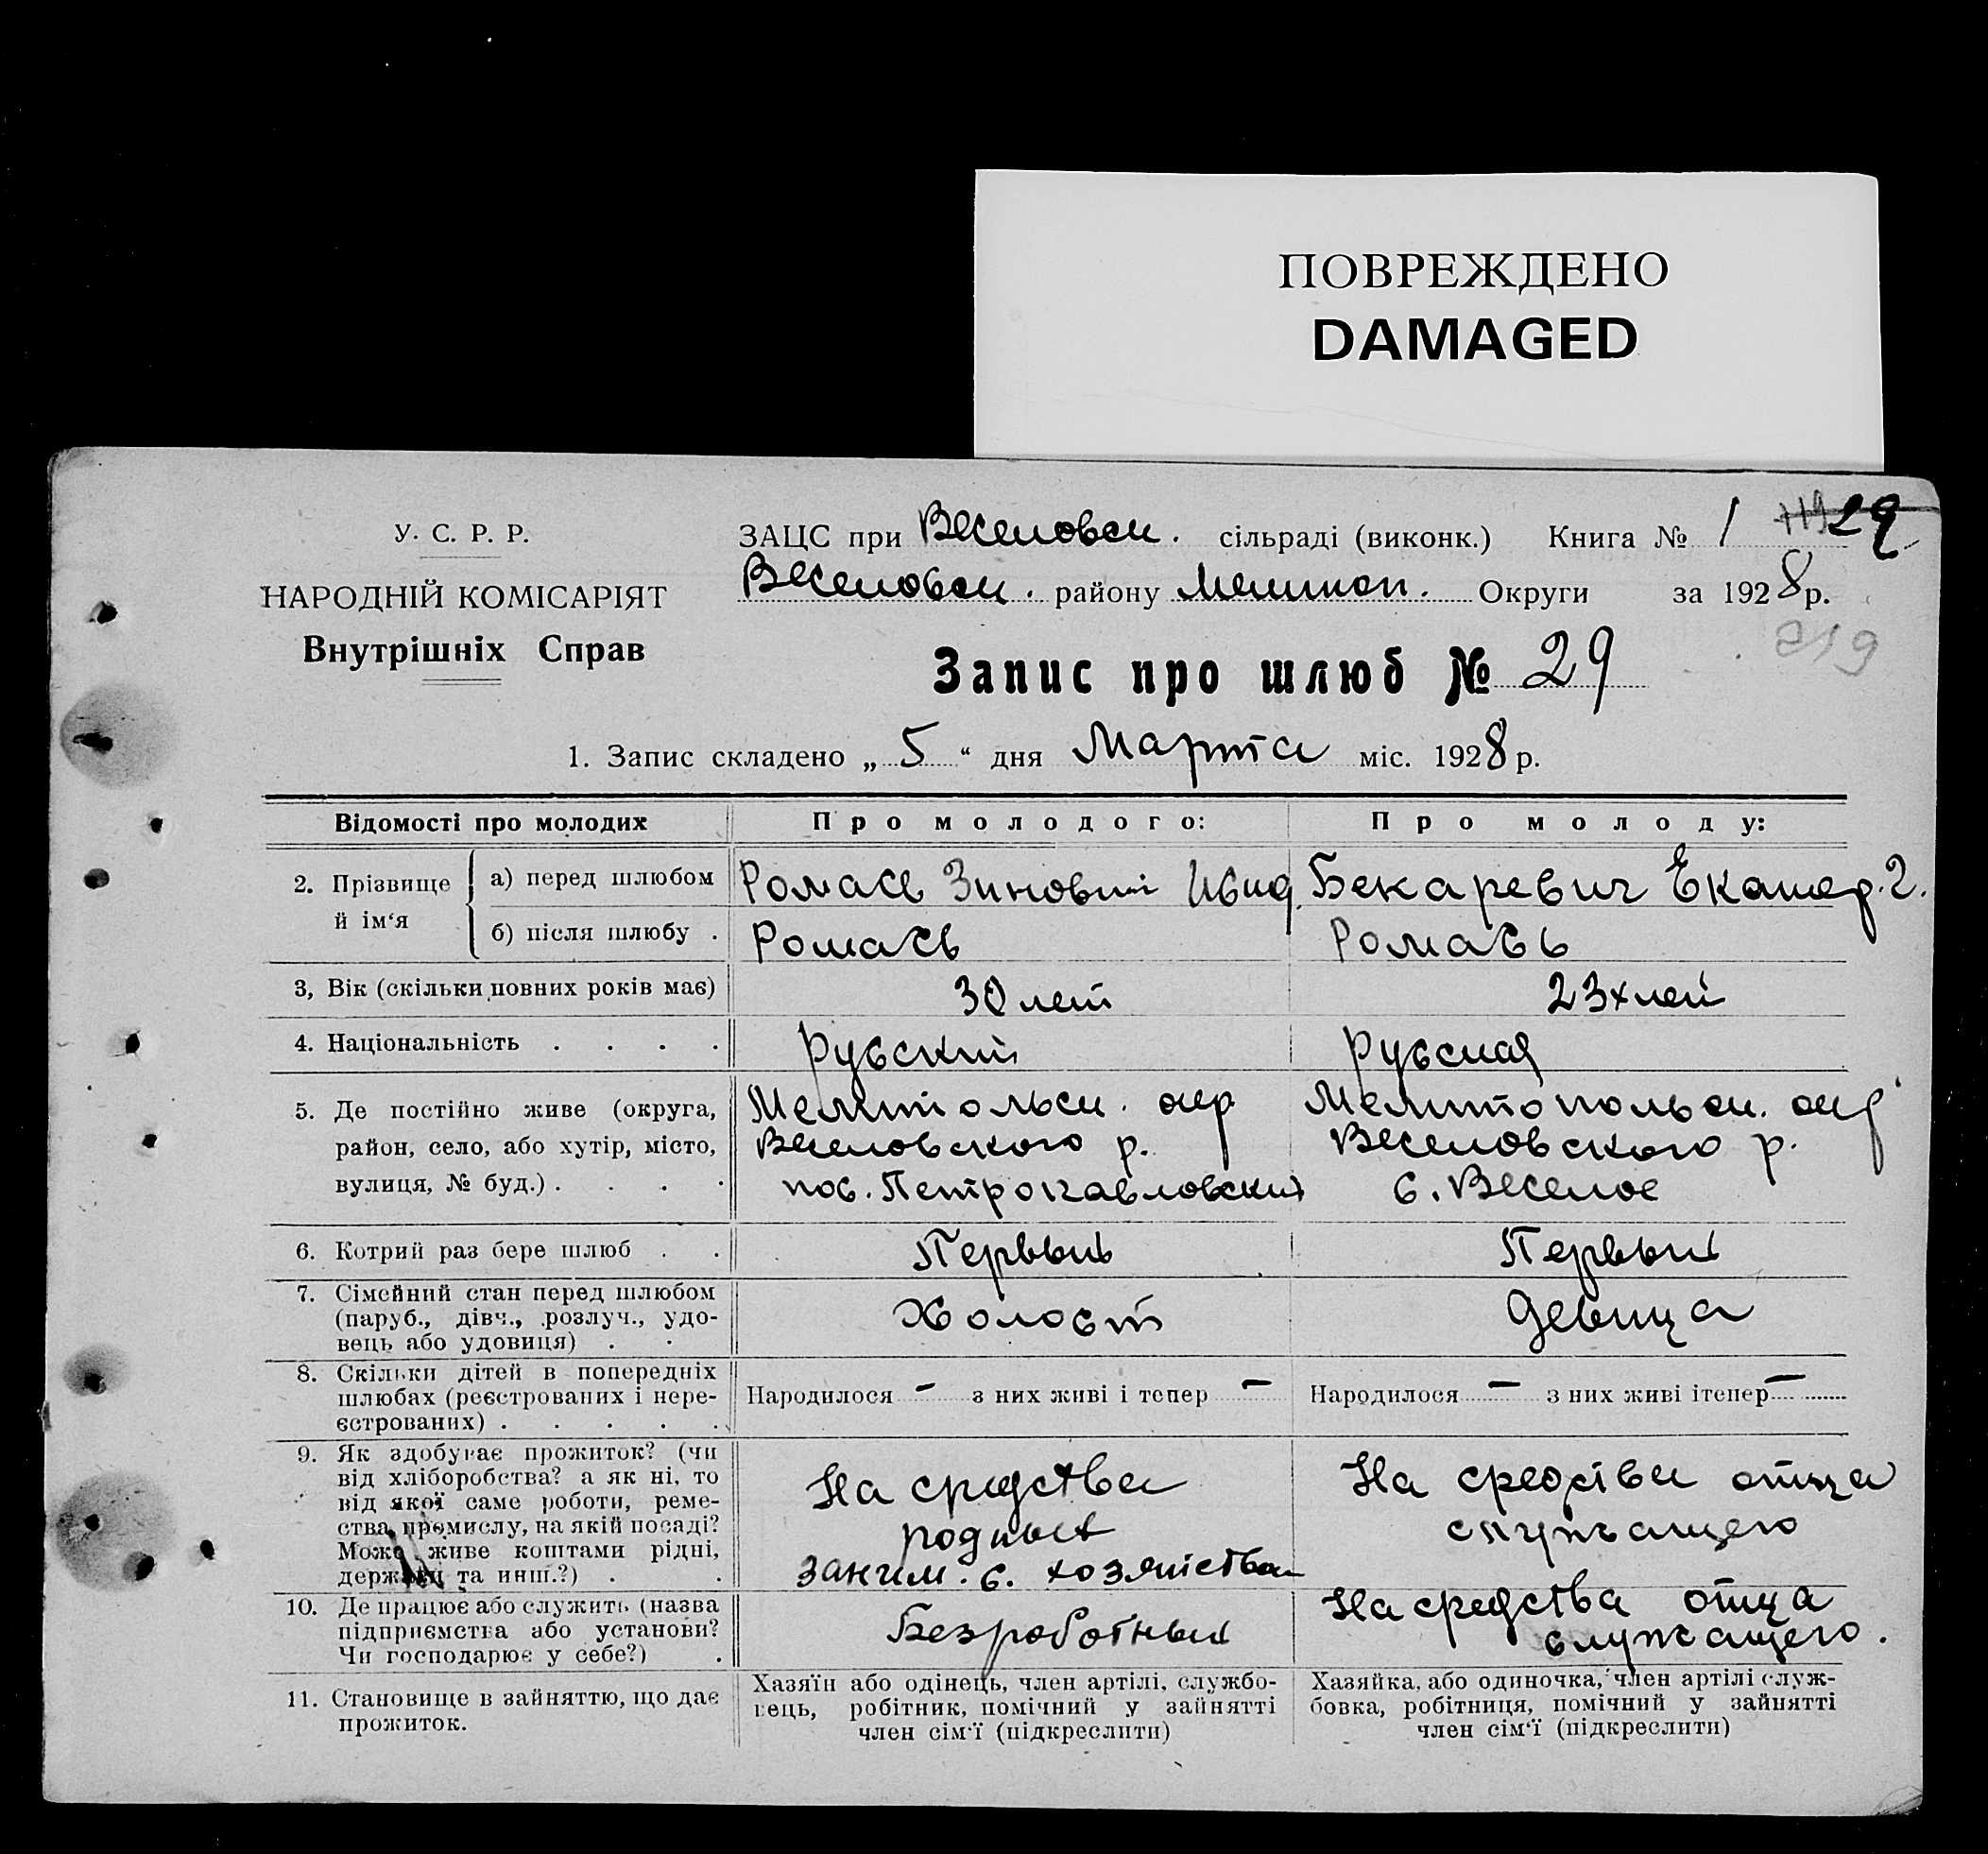 ПОВРЕЖДЕНО
DAMAGED
У. С. Р. Р.
НАРОДНІЙ КОМІСАРІЯТ
Внутрішніх Справ
ЗАЦС при Веселовск. сільраді (виконк.) Книга № 1 119 29
Веселовск. району Мелитоп. Округи за 1928 р.
219
Запис про шлюб № 29
1. Запис складено „ 5 “ дня Марта міс. 1928 р.
Відомості про молодих
Про молодого:
Про молоду:
2. Прізвище й ім‘я
а) перед шлюбом
Ромась Зиновий
Бекаревич Екатер. Г.
б) після шлюбу .
Ромась
Ромась
3, Вік (скільки повних років має)
30 лет
23х лет
4. Національність . . . .
Русский
Русская
5. Де постійно живе (округа,
район, село, або хутір, місто,
вулиця, № буд.) . . . .
Мелитольск. окр
Веселовского р.
пос. Петропавловский
Мелитопольск. окр
Веселовского р.
с. Веселое
6. Котрий раз бере шлюб . .
Первый
Первый
7. Сімейний стан перед шлюбом
(паруб., дівч., розлуч., удо-
вець або удовиця) . .
Холост
Девица
8. Скільки дітей в попередніх
шлюбах (реєстрованих і нере-
єстрованих) . . . . .
Народилося — з них живі і тепер —
Народилося — з них живі ітепер —
9. Як здобуває прожиток? (чи
від хліборобства? а як ні, то
від якої саме роботи, реме-
ства, промислу, на якій посаді?
Може живе коштами рідні,
держави та инш.?) . .
На средства
родных
заним. с. хозяйством
На средства отца
служащего
10. Де працює або служить (назва
підприємства або установи?
Чи господарює у себе?) .
Безработный
На средства отца
служащего.
11. Становище в зайняттю, що дає
прожиток.
Хазяїн або одінець, член артілі, службо-
вець, робітник, помічний у зайнятті
член сім‘ї (підкреслити)
Хазяйка, або одиночка, член артілі служ-
бовка, робітниця, помічний у зайнятті
член сім‘ї (підкреслити)